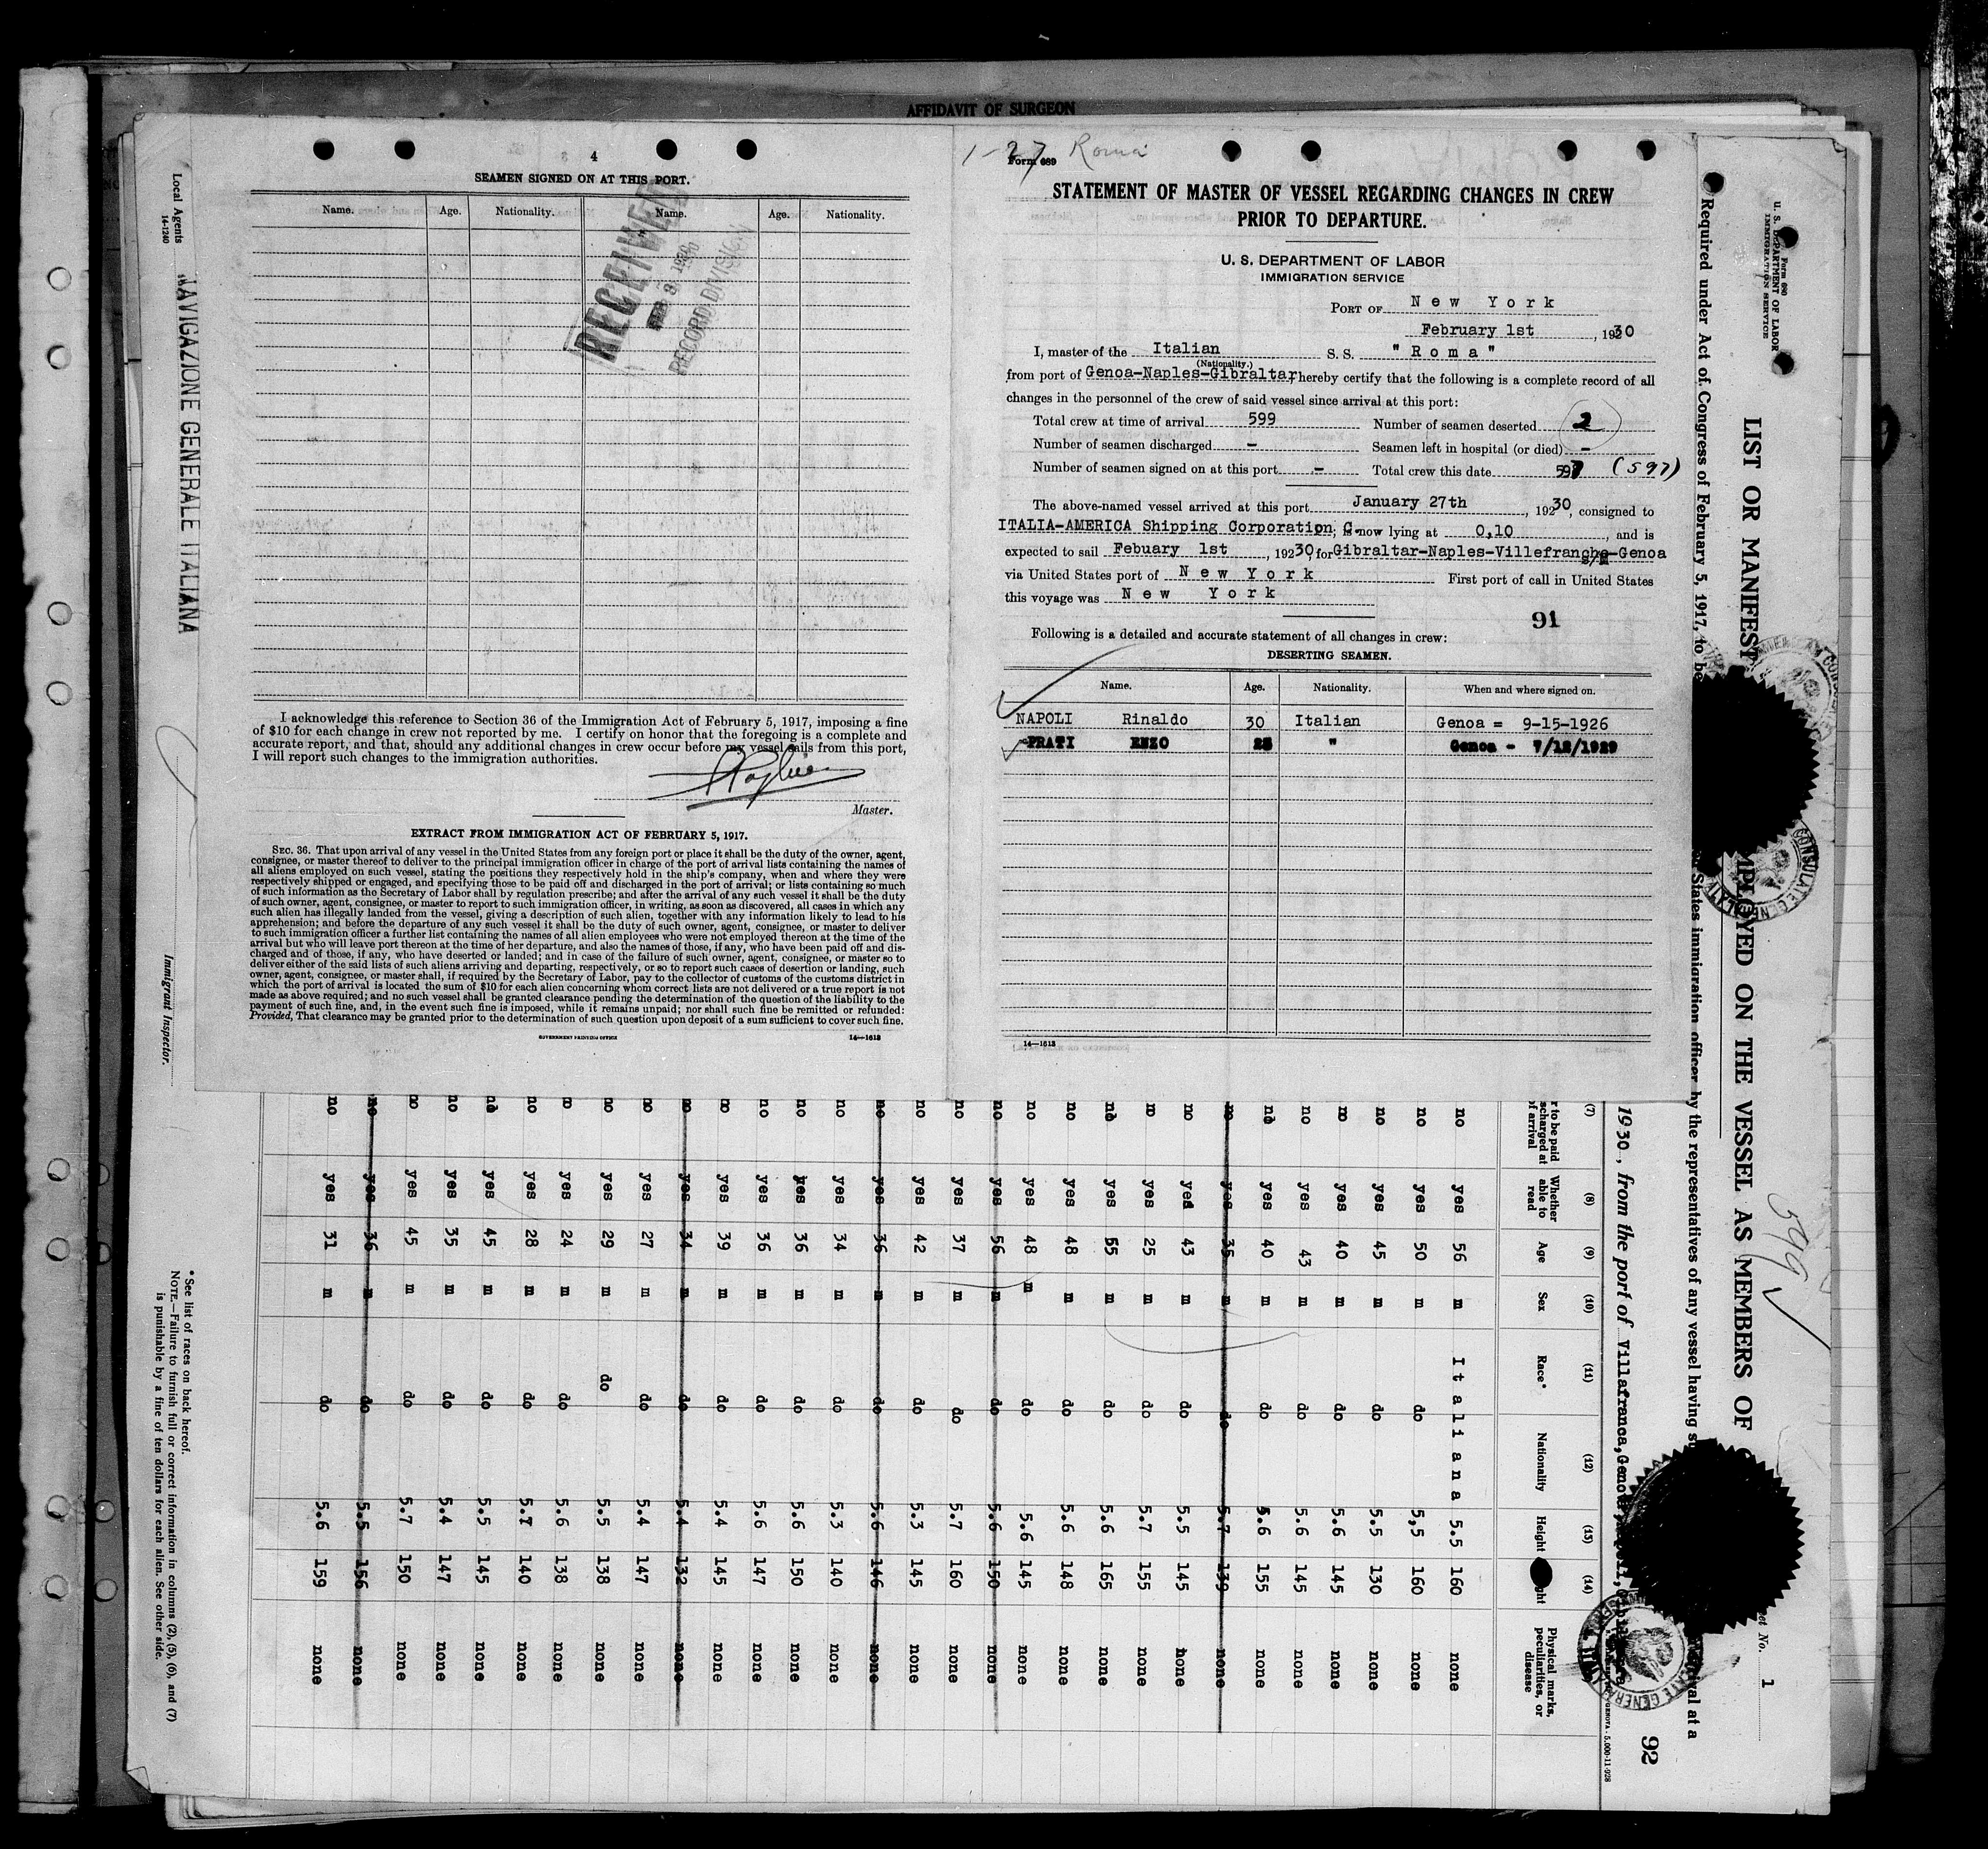 AFFIDAVIT OF SURGEON
4
SEAMEN SIGNED ON AT THIS PORT.
Name. Age. Nationality. Name. Age. Nationality.
RECEIVED
FEB 8 1930
RECORD DIVISION
I acknowledge this reference to Section 36 of the Immigration Act of February 5, 1917, imposing a fine
of $10 for each change in crew not reported by me. I certify on honor that the foregoing is a complete and
accurate report, and that, should any additional changes in crew occur before my vessel sails from this port,
I will report such changes to the immigration authorities.
Master.
EXTRACT FROM IMMIGRATION ACT OF FEBRUARY 5, 1917.
SEC. 36. That upon arrival of any vessel in the United States from any foreign port or place it shall be the duty of the owner, agent,
consignee, or master thereof to deliver to the principal immigration officer in charge of the port of arrival lists containing the names of
all aliens employed on such vessel, stating the positions they respectively hold in the ship's company, when and where they were
respectively shipped or engaged, and specifying those to be paid off and discharged in the port of arrival; or lists containing so much
of such information as the Secretary of Labor shall by regulation prescribe; and after the arrival of any such vessel it shall be the duty
of such owner, agent, consignee, or master to report to such immigration officer, in writing, as soon as discovered, all cases in which any
such alien has illegally landed from the vessel, giving a description of such alien, together with any information likely to lead to his
apprehension; and before the departure of any such vessel it shall be the duty of such owner, agent, consignee, or master to deliver
to such immigration officer a further list containing the names of all alien employees who were not employed thereon at the time of the
arrival but who will leave port thereon at the time of her departure, and also the names of those, if any, who have been paid off and dis-
charged and of those, if any, who have deserted or landed; and in case of the failure of such owner, agent, consignee, or master so to
deliver either of the said lists of such aliens arriving and departing, respectively, or so to report such cases of desertion or landing, such
owner, agent, consignee, or master shall, if required by the Secretary of Labor, pay to the collector of customs of the customs district in
which the port of arrival is located the sum of $10 for each alien concerning whom correct lists are not delivered or a true report is not
made as above required; and no such vessel shall be granted clearance pending the determination of the question of the liability to the
payment of such fine, and, in the event such fine is imposed, while it remains unpaid; nor shall such fine be remitted or refunded:
Provided, That clearance may be granted prior to the determination of such question upon deposit of a sum sufficient to cover such fine.
GOVERNMENT PRINTING OFFICE 14—1613
1-27 Roma
Form 689
STATEMENT OF MASTER OF VESSEL REGARDING CHANGES IN CREW
PRIOR TO DEPARTURE.
U. S. DEPARTMENT OF LABOR
IMMIGRATION SERVICE
PORT OF New York
February 1st, 1930
I, master of the Italian S. S. "Roma"
(Nationality.)
from port of Genoa-Naples-Gibraltar, hereby certify that the following is a complete record of all
changes in the personnel of the crew of said vessel since arrival at this port:
Total crew at time of arrival 599 Number of seamen deserted 2
Number of seamen discharged - Seamen left in hospital (or died) -
Number of seamen signed on at this port - Total crew this date 597 (597)
The above-named vessel arrived at this port January 27th, 1930, consigned to
ITALIA-AMERICA Shipping Corporation, is now lying at 0,10, and is
expected to sail Febuary 1st, 19230, for Gibraltar-Naples-Villefranche-Genoa
via United States port of New York First port of call in United States
this voyage was New York
91
Following is a detailed and accurate statement of all changes in crew:
DESERTING SEAMEN.
Name. Age. Nationality. When and where signed on.
NAPOLI Rinaldo 30 Italian Genoa = 9-15-1926
PRATI ENZO 25 " Genoa - 7/12/1929
14—1613
U. S. DEPARTMENT OF LABOR
IMMIGRATION SERVICE
Form 680
LIST OR MANIFEST
EMPLOYED ON THE VESSEL AS MEMBERS OF
Required under Act of Congress of February 5, 1917, to be
States immigration officer by the representatives of any vessel having
al at a
599
et No. 1
92
1930, from the port of Villafranca, Genova, Napoli,
GENOVA - 5.000-11-928
(7) (8) (9) (10) (11) (12) (13) (14)
r to be paid
scharged at
of arrival
Whether
able to
read
Age Sex Race* Nationality Height
Physical marks,
peculiarities, or
disease
no yes 56 m Italiana 5.5 160 none
no yes 50 m do 5,5 160 none
no yes 45 m do 5.5 130 none
no yes 40 m do 5.6 145 none
no yes 43 m do 5.6 145 none
no yes 40 m do 5.6 155 none
no yes 35 m do 5.7 139 none
no yes 43 m do 5.5 145 none
no yes 25 m do 5.7 155 none
no yes 55 m do 5.6 165 none
no yes 48 m do 5.6 148 none
no yes 48 m do 5.6 145 none
no yes 56 m do 5.6 150 none
no yes 37 m do 5.7 160 none
no yes 42 m do 5.3 145 none
no yes 36 m do 5.6 146 none
no yes 34 m do 5.3 140 none
no yes 36 m do 5.6 150 none
no yes 36 m do 5.6 147 none
no yes 39 m do 5.4 145 none
no yes 34 m do 5.4 132 none
no yes 27 m do 5.4 147 none
no yes 29 m do 5.5 138 none
no yes 24 m do 5.6 138 none
no yes 28 m do 5.7 140 none
no yes 45 m do 5.5 145 none
no yes 35 m do 5.4 147 none
no yes 45 m do 5.7 150 none
no yes 36 m do 5.5 156 none
no yes 31 m do 5.6 159 none
* See list of races on back hereof.
NOTE.—Failure to furnish full or correct information in columns (2), (5), (6), and (7)
is punishable by a fine of ten dollars for each alien. See other side.
Local Agents
14-1240
NAVIGAZIONE GENERALE ITALIANA
Immigrant Inspector.